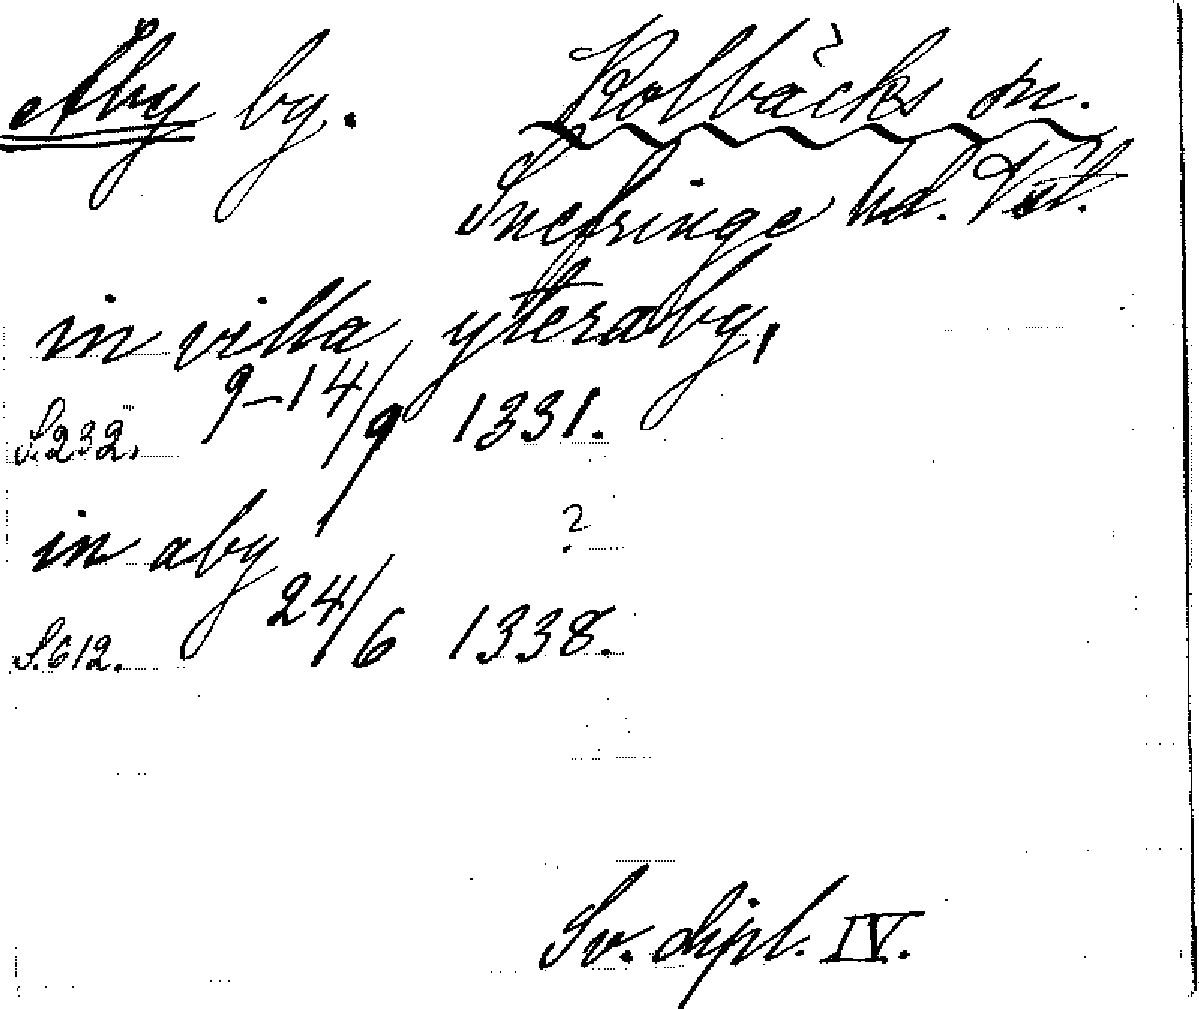 Åby by. Kolbäcks sn.
Snefringe hd. Vstl.
in villa yteraby,
S. 232. 9-14/9 1331.
in aby ?
S. 612. 24/6 1338.
Sv. dipl. IV.